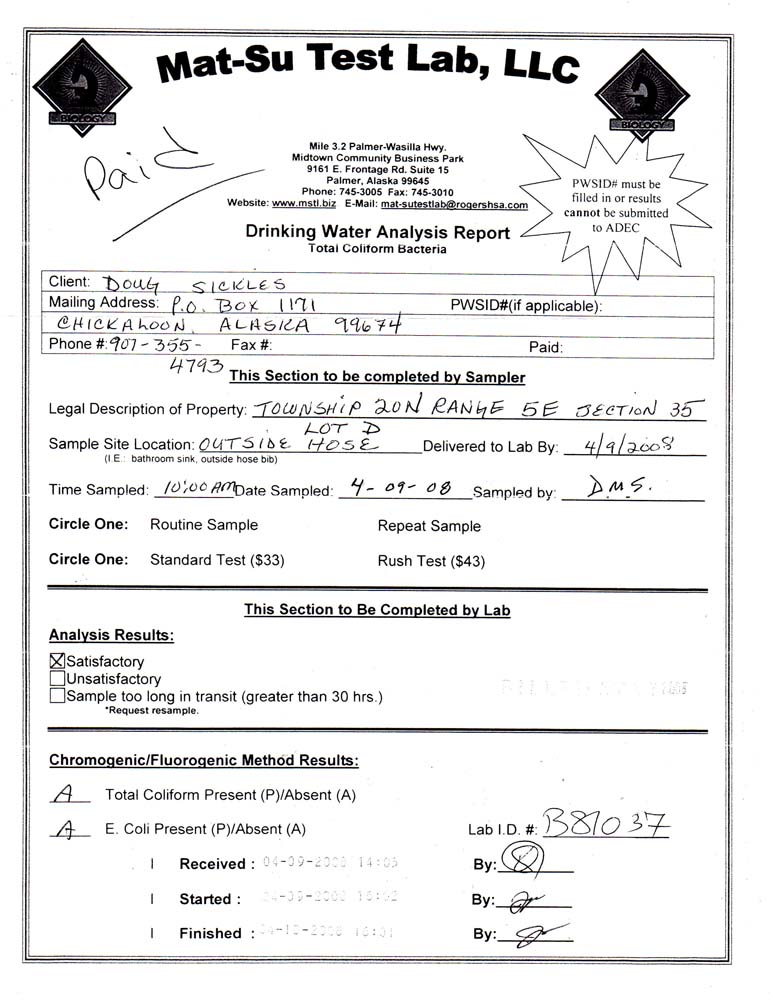 Mat-Su Test Lab, LLC
BIOLOGY
BIOLOGY
Paid
Mile 3.2 Palmer-Wasilla Hwy.
Midtown Community Business Park
9161 E. Frontage Rd. Suite 15
Palmer, Alaska 99645
Phone: 745-3005 Fax: 745-3010
Website: www.mstl.biz E-Mail: mat-sutestlab@rogershsa.com
PWSID# must be
filled in or results
cannot be submitted
to ADEC
Drinking Water Analysis Report
Total Coliform Bacteria
Client: DOUG SICKLES
Mailing Address: P.O. BOX 1171 PWSID#(if applicable):
CHICKALOON, ALASKA 99674
Phone #: 907-355- Fax #: Paid:
4793
This Section to be completed by Sampler
Legal Description of Property: TOWNSHIP 20N RANGE 5E SECTION 35
LOT D
Sample Site Location: OUTSIDE HOSE Delivered to Lab By: 4/9/2008
(I.E.: bathroom sink, outside hose bib)
Time Sampled: 10:00 AM Date Sampled: 4-09-08 Sampled by: D.M.S.
Circle One: Routine Sample Repeat Sample
Circle One: Standard Test ($33) Rush Test ($43)
This Section to Be Completed by Lab
Analysis Results:
Satisfactory
Unsatisfactory
Sample too long in transit (greater than 30 hrs.)
*Request resample.
Chromogenic/Fluorogenic Method Results:
A Total Coliform Present (P)/Absent (A)
A E. Coli Present (P)/Absent (A) Lab I.D. #: B81037
Received : 04-09-2008 14:05 By:
Started : By:
Finished : By: